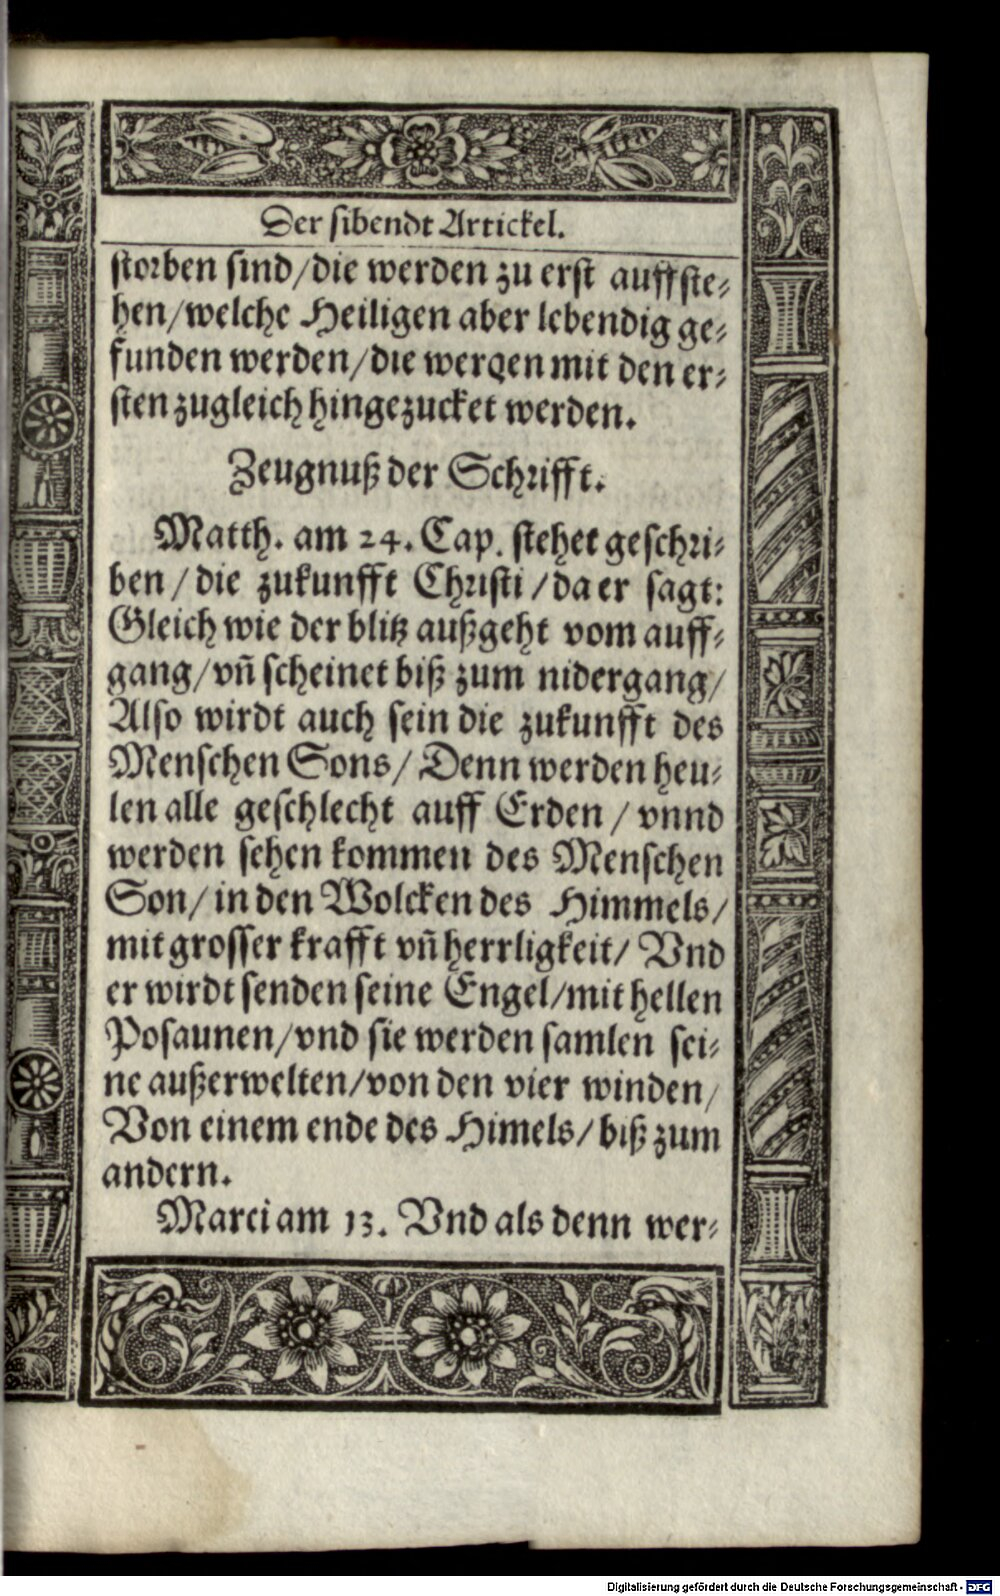 Der sibendt Artickel.
storben sind/die werden zu erst auffste⸗
hen/welche Heiligen aber lebendig ge⸗
funden werden/die werqen mit den er⸗
sten zugleich hingezucket werden.
Zeugnuß der Schrifft.
Matth. am 24. Cap. stehet geschri⸗
ben / die zukunfft Christi / da er sagt:
Gleich wie der blitz außgeht vom auff⸗
gang/vn̄ scheinet biß zum nidergang/
Also wirdt auch sein die zukunfft des
Menschen Sons/ Denn werden heu⸗
len alle geschlecht auff Erden / vnnd
werden sehen kommen des Menschen
Son/ in den Wolcken des Himmels/
mit grosser krafft vn̄ herrligkeit/ Vnd
er wirdt senden seine Engel/mit hellen
Posaunen/vnd sie werden samlen sei⸗
ne außerwelten/von den vier winden/
Von einem ende des Himels/ biß zum
andern.
Marci am 13. Vnd als denn wer⸗
Digitalisierung gefördert durch die Deutsche Forschungsgemeinschaft - DFG